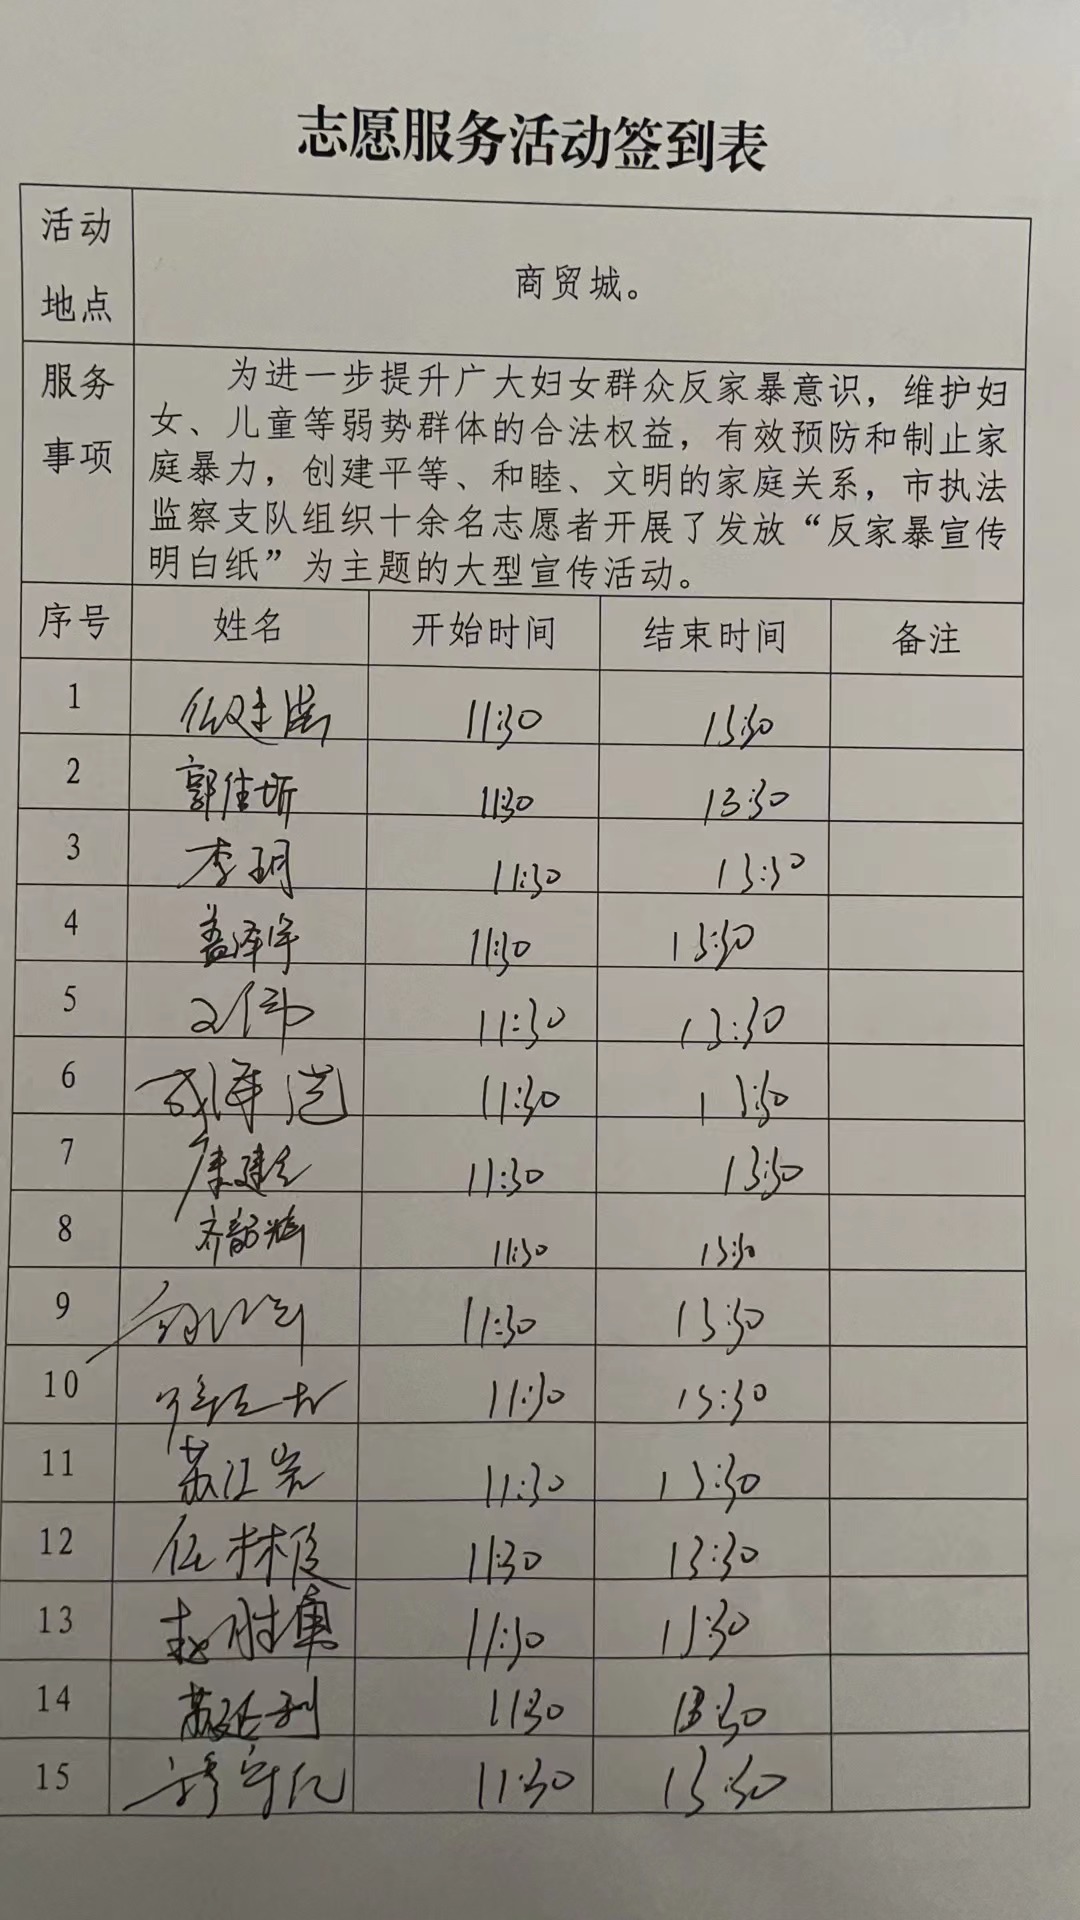 志愿服务活动签到表
活动
地点
商贸城。
服务
事项
为进一步提升广大妇女群众反家暴意识，维护妇
女、儿童等弱势群体的合法权益，有效预防和制止家
庭暴力，创建平等、和睦、文明的家庭关系，市执法
监察支队组织十余名志愿者开展了发放“反家暴宣传
明白纸”为主题的大型宣传活动。
序号 姓名 开始时间 结束时间 备注
1 11:30 13:30
2 郭佳圻 11:30 13:30
3 李玥 11:30 13:30
4 盖泽宇 11:30 13:30
5 刘伟 11:30 13:30
6 11:30 13:30
7 11:30 13:30
8 齐韶辉 11:30 13:30
9 11:30 13:30
10 11:30 13:30
11 苏江岩 11:30 13:30
12 任林俊 11:30 13:30
13 赵胜军 11:30 13:30
14 苏延利 11:30 13:30
15 11:30 13:30